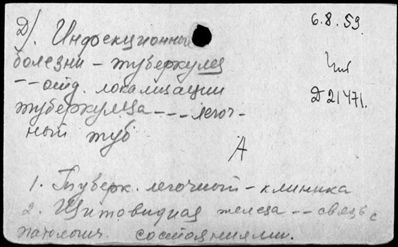 Д/. Инфекционные
болезни – туберкулез
-- отд. локализации
туберкулеза --- легоч-
ный туб
6.8.59.
Д21471.
А
1. Туберк. легочный – клиника
2. Щитовидная железа -- связь с
патологич. состояниями.